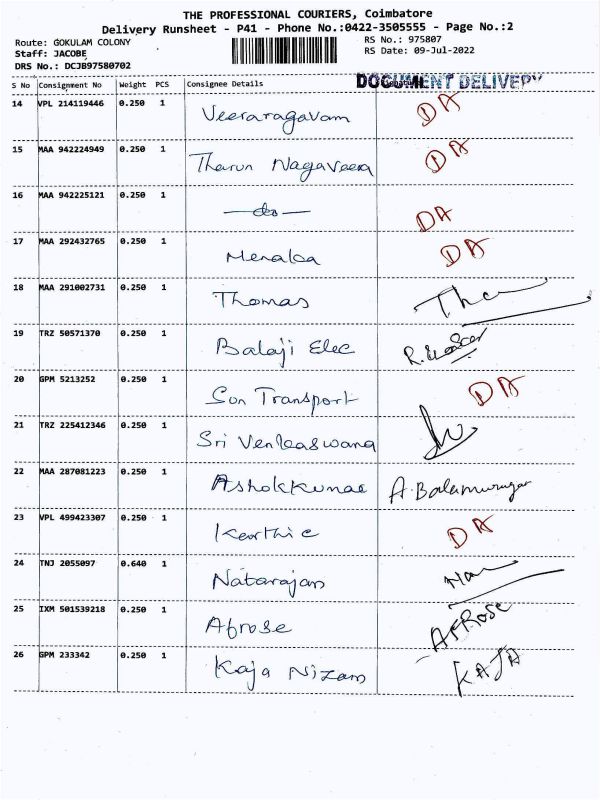 THE PROFESSIONAL COURIERS, Coimbatore
Delivery Runsheet - P41 - Phone No.:0422-3505555 - Page No.:2
Route: GOKULAM COLONY RS No.: 975807
Staff: JACOBE RS Date: 09-Jul-2022
DRS No.: DCJB97580702
DOCUMENT DELIVERY
S No Consignment No Weight PCS Consignee Details
14 VPL 214119446 0.250 1 Veeraragavam DA
15 MAA 942224949 0.250 1 Tharun Nagaveera DA
16 MAA 942225121 0.250 1 —do— DA
17 MAA 292432765 0.250 1 Menaka DA
18 MAA 291002731 0.250 1 Thomas
19 TRZ 50571370 0.250 1 Balaji Elec
20 GPM 5213252 0.250 1 Son Transport DA
21 TRZ 225412346 0.250 1 Sri
22 MAA 287081223 0.250 1 Ashokkumar A. Balamurugan
23 VPL 499423307 0.250 1 Karthic DA
24 TNJ 2055097 0.640 1 Natarajan
25 IXM 501539218 0.250 1 Afrose AFROSE
26 GPM 233342 0.250 1 Kaja Nizam KAJA